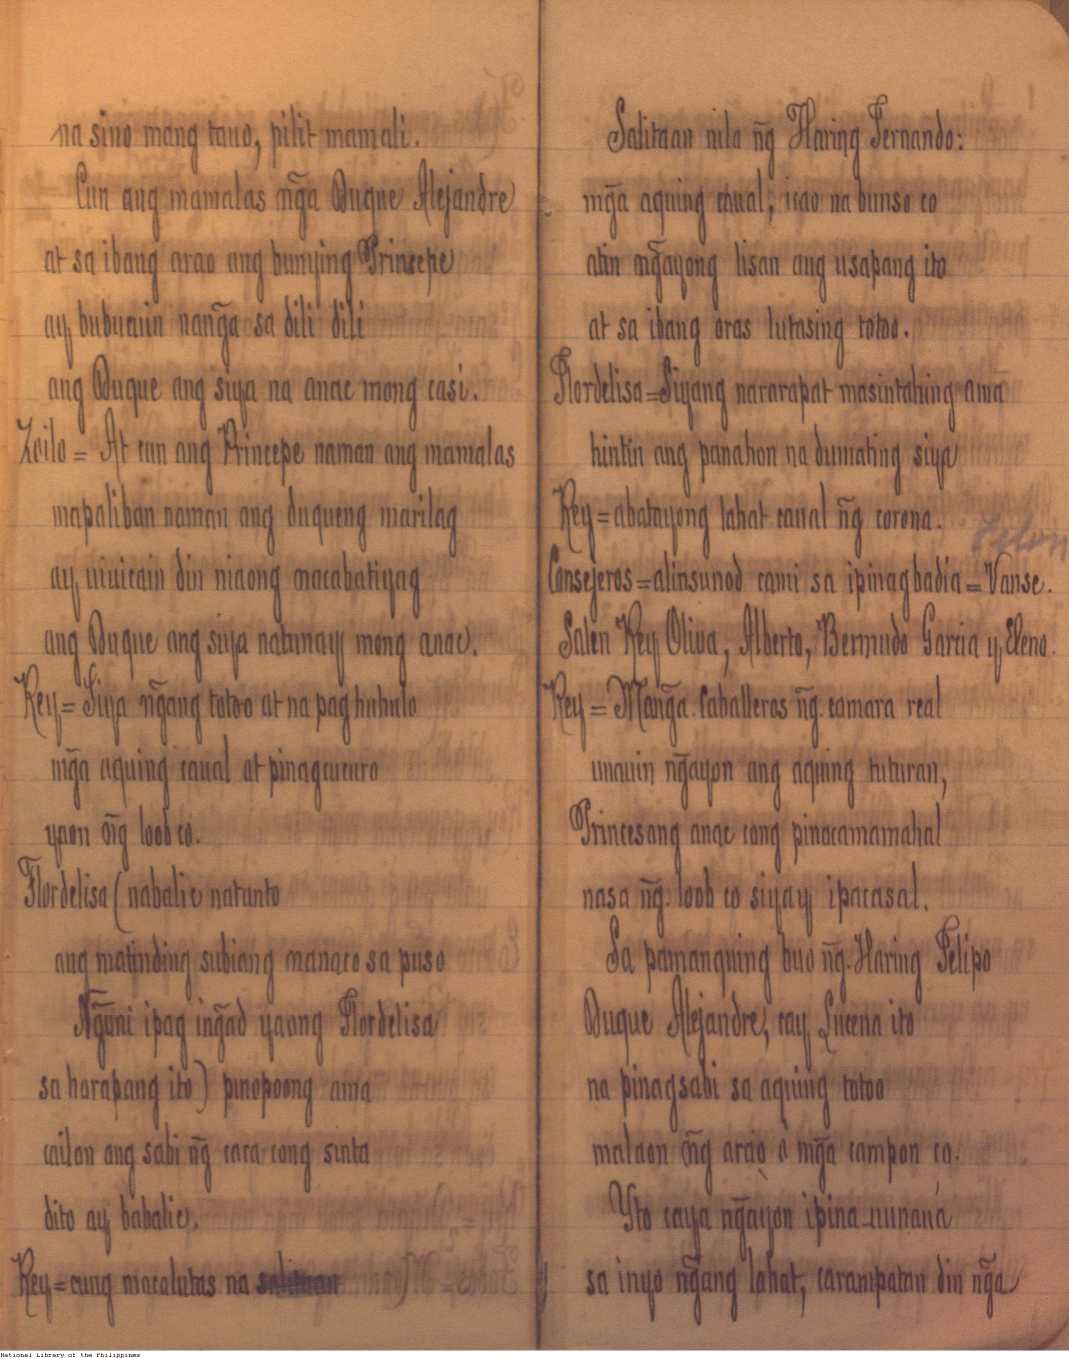 na sino mang tauo, pilit mamali.
Cun ang mamalas ng̃a Duque Alejandre
at sa ibang arao ang bunying Princepe
ay bubucuin nang̃a sa dili dili
ang Duque ang siya na anac mong casi.
Zoilo = At cun ang Princepe naman ang mamalas
mapaliban naman ang duqueng marilag
ay uiuicain din niaong macabatiyag
ang Duque ang siya natunay mong anac.
Rey = Siya ng̃ang totoo at na pag huhulo
mg̃a aquing caual at pinagcucuro
yaon n͠g loob co.
Flordelisa (nabalic natanto
ang matinding subiang manaco sa puso
Ng̃uni ipag ing̃ad yaong Flordelisa
sa harapang ito) pinopoong ama
cailan ang sabi n͠g caca cong sinta
dito ay babalic.
Rey = cung macalutas na
Salitaan nila n͠g Haring Fernando:
mg̃a aquing caual, icao na bunso co
atin ng̃ayong lisan ang usapang ito
at sa ibang oras lutasing totoo.
Flordelisa = Siyang nararapat masintahing ama
hintin ang panahon na dumating siya
Rey = abatayong lahat caual n͠g corona.
Consejeros = alinsunod cami sa ipinagbadia = Vanse.
Salen Rey Oliva, Alberto, Bermudo Garcia y Eleno.
Rey = Mang̃a Caballeros n͠g camara real
unauin ng̃ayon ang aquing tuturan,
Princesang anac cong pinacamamahal
nasa n͠g loob co siyay ipacasal.
Sa pamanquing buo n͠g Haring Felipo
Duque Alejandre, cay Lucena ito
na pinagsabi sa aquing totoo
malaon n͠g arao ò mg̃a campon co.
Yto caya ng̃ayon ipina-uunaná
sa inyo ng̃ang lahat, carampatan din ng̃a
National Library of the Philippines